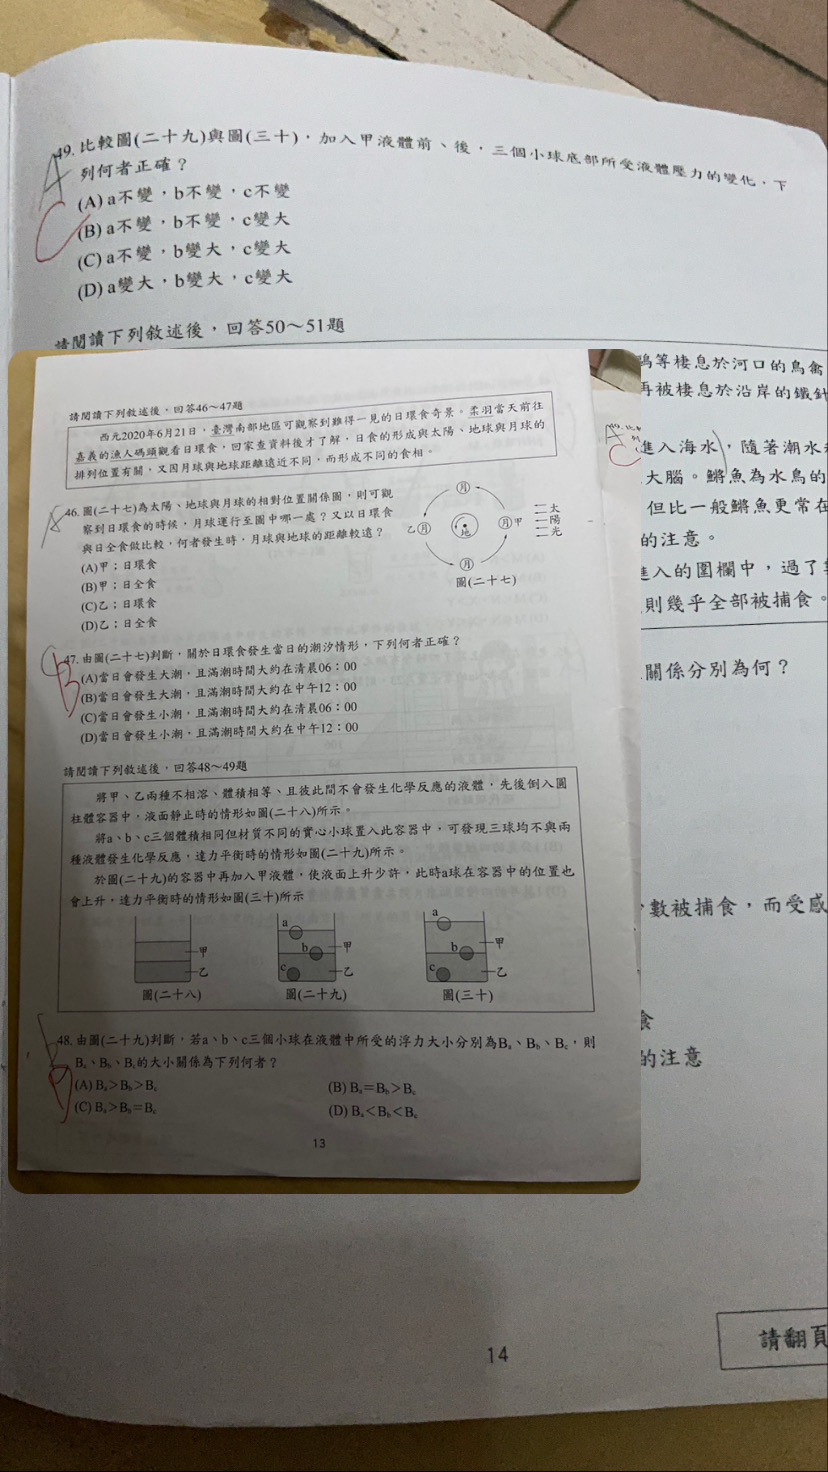 49. 比較圖(二十九)與圖(三十)，加入甲液體前、後，三個小球底部所受液體壓力的變化，下
列何者正確？
(A) a不變，b不變，c不變
(B) a不變，b不變，c變大
(C) a不變，b變大，c變大
(D) a變大，b變大，c變大
請閱讀下列敘述後，回答50～51題
等棲息於河口的鳥禽
再被棲息於沿岸的鐵針
進入海水，隨著潮水
大腦。鱂魚為水鳥的
但比一般鱂魚更常在
的注意。
進入的圍欄中，過了
則幾乎全部被捕食。
關係分別為何？
數被捕食，而受感
食
的注意
14
請翻頁
請閱讀下列敘述後，回答46～47題
西元2020年6月21日，臺灣南部地區可觀察到難得一見的日環食奇景。柔羽當天前往
嘉義的漁人碼頭觀看日環食，回家查資料後才了解，日食的形成與太陽、地球與月球的
排列位置有關，又因月球與地球距離遠近不同，而形成不同的食相。
46. 圖(二十七)為太陽、地球與月球的相對位置關係圖，則可觀
察到日環食的時候，月球運行至圖中哪一處？又以日環食
與日全食做比較，何者發生時，月球與地球的距離較遠？
(A)甲；日環食
(B)甲；日全食
(C)乙；日環食
(D)乙；日全食
月
乙 月 地 月 甲
月
太陽光
圖(二十七)
47. 由圖(二十七)判斷，關於日環食發生當日的潮汐情形，下列何者正確？
(A)當日會發生大潮，且滿潮時間大約在清晨06：00
(B)當日會發生大潮，且滿潮時間大約在中午12：00
(C)當日會發生小潮，且滿潮時間大約在清晨06：00
(D)當日會發生小潮，且滿潮時間大約在中午12：00
請閱讀下列敘述後，回答48～49題
將甲、乙兩種不相溶、體積相等、且彼此間不會發生化學反應的液體，先後倒入圓
柱體容器中，液面靜止時的情形如圖(二十八)所示。
將a、b、c三個體積相同但材質不同的實心小球置入此容器中，可發現三球均不與兩
種液體發生化學反應，達力平衡時的情形如圖(二十九)所示。
於圖(二十九)的容器中再加入甲液體，使液面上升少許，此時a球在容器中的位置也
會上升，達力平衡時的情形如圖(三十)所示
甲
乙
圖(二十八)
a
b 甲
c 乙
圖(二十九)
a
b 甲
c 乙
圖(三十)
48. 由圖(二十九)判斷，若a、b、c三個小球在液體中所受的浮力大小分別為Bₐ、B_b、B_c，則
Bₐ、B_b、B_c的大小關係為下列何者？
(A) Bₐ＞B_b＞B_c
(B) Bₐ＝B_b＞B_c
(C) Bₐ＞B_b＝B_c
(D) Bₐ＜B_b＜B_c
13